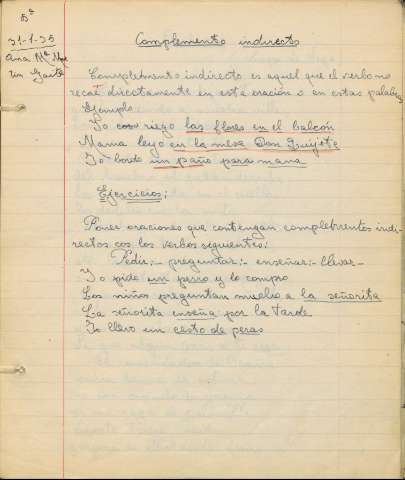 5º
31-1-35
Ana Mª Mar
tin Gaite
Complemento indirecto
Complebmento indirecto es aquel que el verbo no
recae directamente en esta oración o en estas palabras
Ejemplo
Yo riego las flores en el balcón
Mama leyo en la mesa Don Quijote
Yo bordo un paño para mama
Ejercicios:
Poner oraciones que contengan complebmentos indi-
rectos con los verbos siguientes:
Pedir:- preguntar:- enseñar:- llevar-
Yo pido un perro y lo compro
Los niños preguntan mucho a la señorita
La señorita enseña por la tarde
Yo llevo un cesto de peras